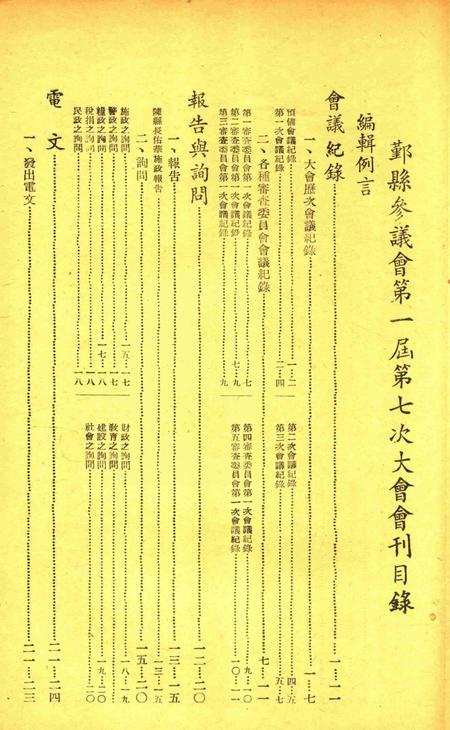 鄞縣參議會第一屆第七次大會會刊目錄
編輯例言
會議紀錄……一…一一
一、大會歷次會議紀錄……一…七
預備會議紀錄……一…二
第二次會議紀錄……四…五
第一次會議紀錄……二…四
第三次會議紀錄……五…七
二、各種審查委員會會議紀錄……七…一一
第一審查委員會第一次會議紀錄……七
第四審查委員會第一次會議紀錄……九…一〇
第二審查委員會第一次會議紀錄……七…九
第五審查委員會第一次會議紀錄……一〇…一一
第三審查委員會第一次會議紀錄……九
報告與詢問……一二…二〇
一、報告……一三…一五
陳縣長佑華施政報告……一三…一五
二、詢問……一五…二〇
施政之詢問……一五…一七
財政之詢問……一八…一九
警政之詢問……一七
教育之詢問……一九
糧政之詢問……一七…一八
建設之詢問……一九…二〇
稅捐之詢問……一八
社會之詢問……二〇
民政之詢問……一八
電文……二一…二四
一、發出電文……二一…二三